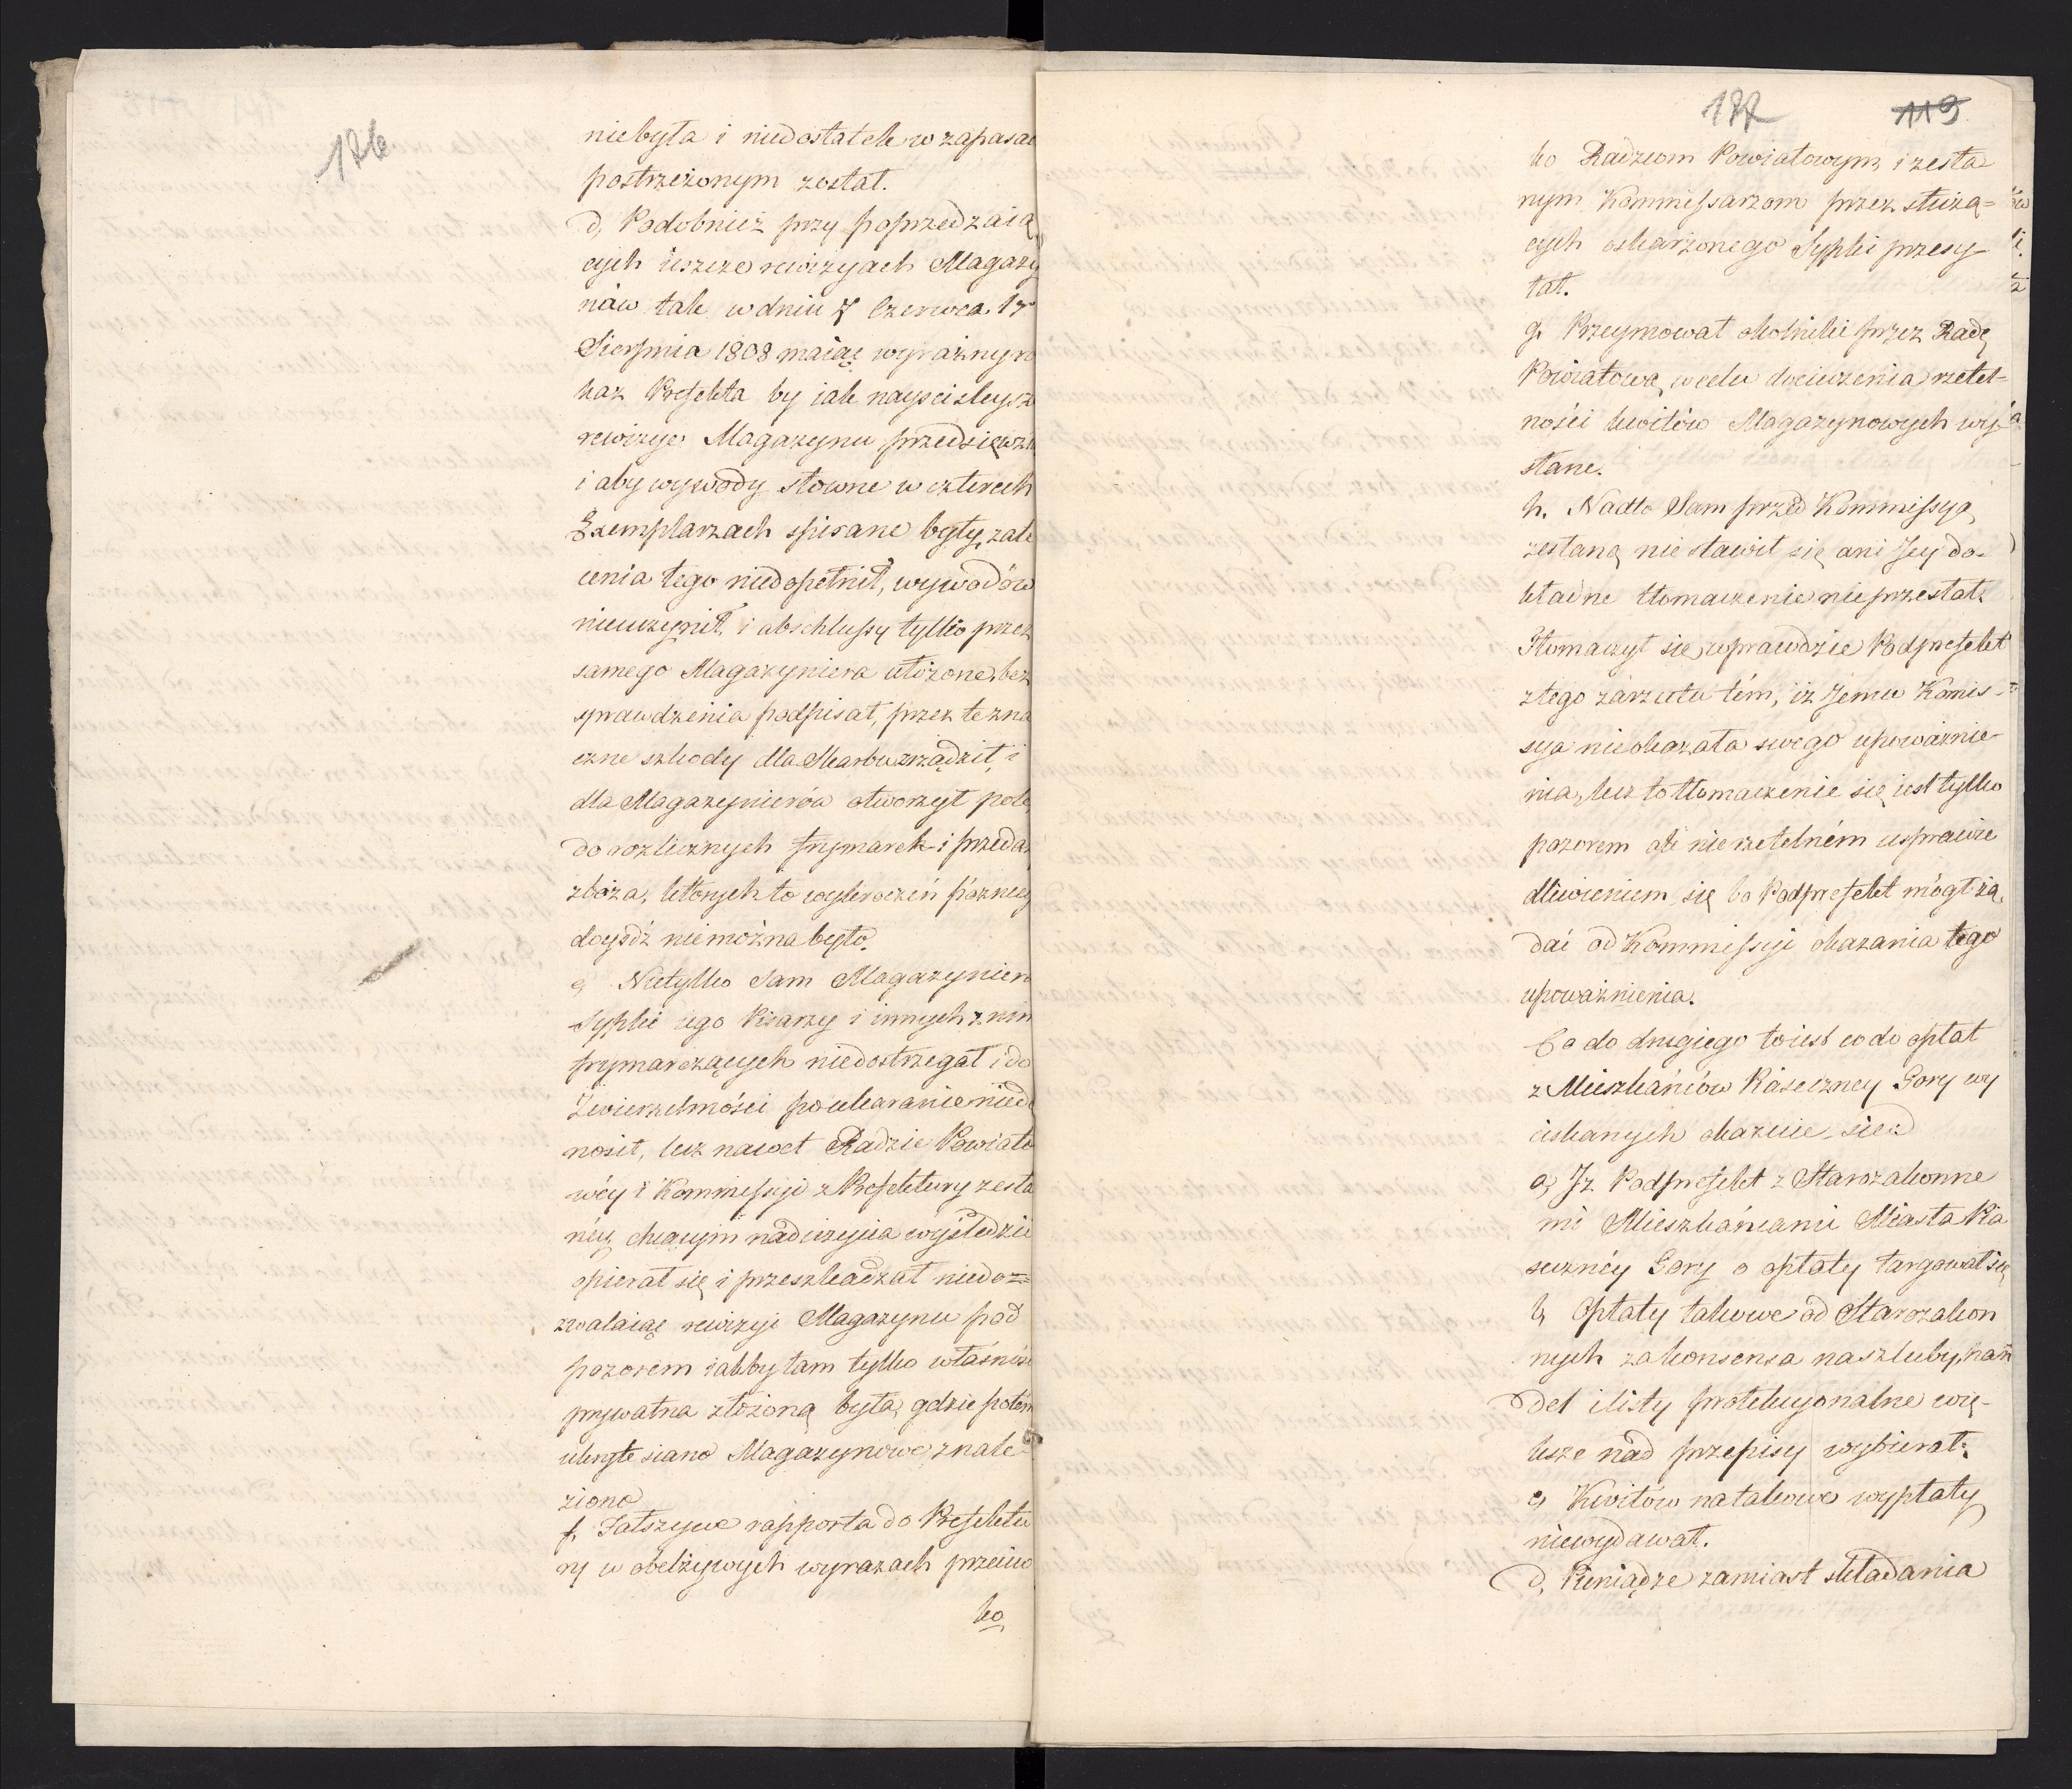 176
niebyła i niedostatek w zapasac
postrzeżonym został.
d, Podobnież przy poprzedzaią
cych ieszcze rewizyach Magazy
nów tak w dniu 7 Czerwca. 17
Sierpnia 1808 maiąc wyraźny ro
kaz Prefekta by iak nayściśleysz
rewizye Magazynu przedsięwzi
i aby wywody słowne w czterech
Exemplarzach spisane były, zale
cenia tego niedopełnił, wywodów
nieuczynił, i abschlussy tylko przez
samego Magazyniera ułożone, bez
sprawdzenia podpisał, przez te zna
czne szkody dla Skarbu zrządził, i
dla Magazynierów otworzył pole
do rozlicznych frymarek i przeda
zboża, których to wykroczeń późniey
doyśdź niemożna było.
e, Nietylko sam Magazyniera
Sypki iego Pisarzy i innych z nim
frymarczących niedostrzegał i do
Zwierzchności po ukaranie nied
nosił, lecz nawet Radzie Powiato
wéy i Kommissyi z Prefektury zesła
néy, chcącym nadużycia wyśledzić
opierał się i przeszkadzał niedo=
zwalaiąc rewizyi Magazynu pod
pozorem iakby tam tylko własność
prywatna złożoną była, gdzie potém
ukryte siano Magazynowe znale-
ziono
f, Fałszywe rapporta do Prefektu
ry w obelżywych wyrazach przeciw
ko
177
119
ko Radzcom Powiatowym, i zesła
nym Kommissarzom przez służą=
cych oskarżonego Sypki przesy
łał.
g. Przeymował okolniki przez Radę
Powiatową w celu docieczenia rzetel=
ności kwitów Magazynowych wy
słane.
h. Nadto Sam przed Kommissyą
zesłaną nie stawił się ani Jey do-
kładne tłomaczenie nieprzesłał.
Tłomaczył się wprawdzie Podprefekt
z tego zarzutu tém, iż Jemu Komis-
sya nieokazała swego upoważnie-
nia, lecz to tłomaczenie się iest tylko
pozorem ale nierzetelném usprawie
dliwieniem się bo Podprefekt mógł żą,
dać od Kommissyi okazania tego
upoważnienia.
Co do drugiego toiest co do opłat
z Mieszkańców Piaseczney Gory wy
ciskanych okazuie się:
a, Jż Podprefekt z Starozakonne
mi Mieszkańcami Miasta Pia
seczney Gory o opłaty targował się
b, Opłaty takowe od Starozakon
nych za konsensa na szluby, han
del i listy protekcyonalne wię-
ksze nad przepisy wybierał.
c, Kwitów na takowe wypłaty
niewydawał.
d, Pieniądze zamiast składania